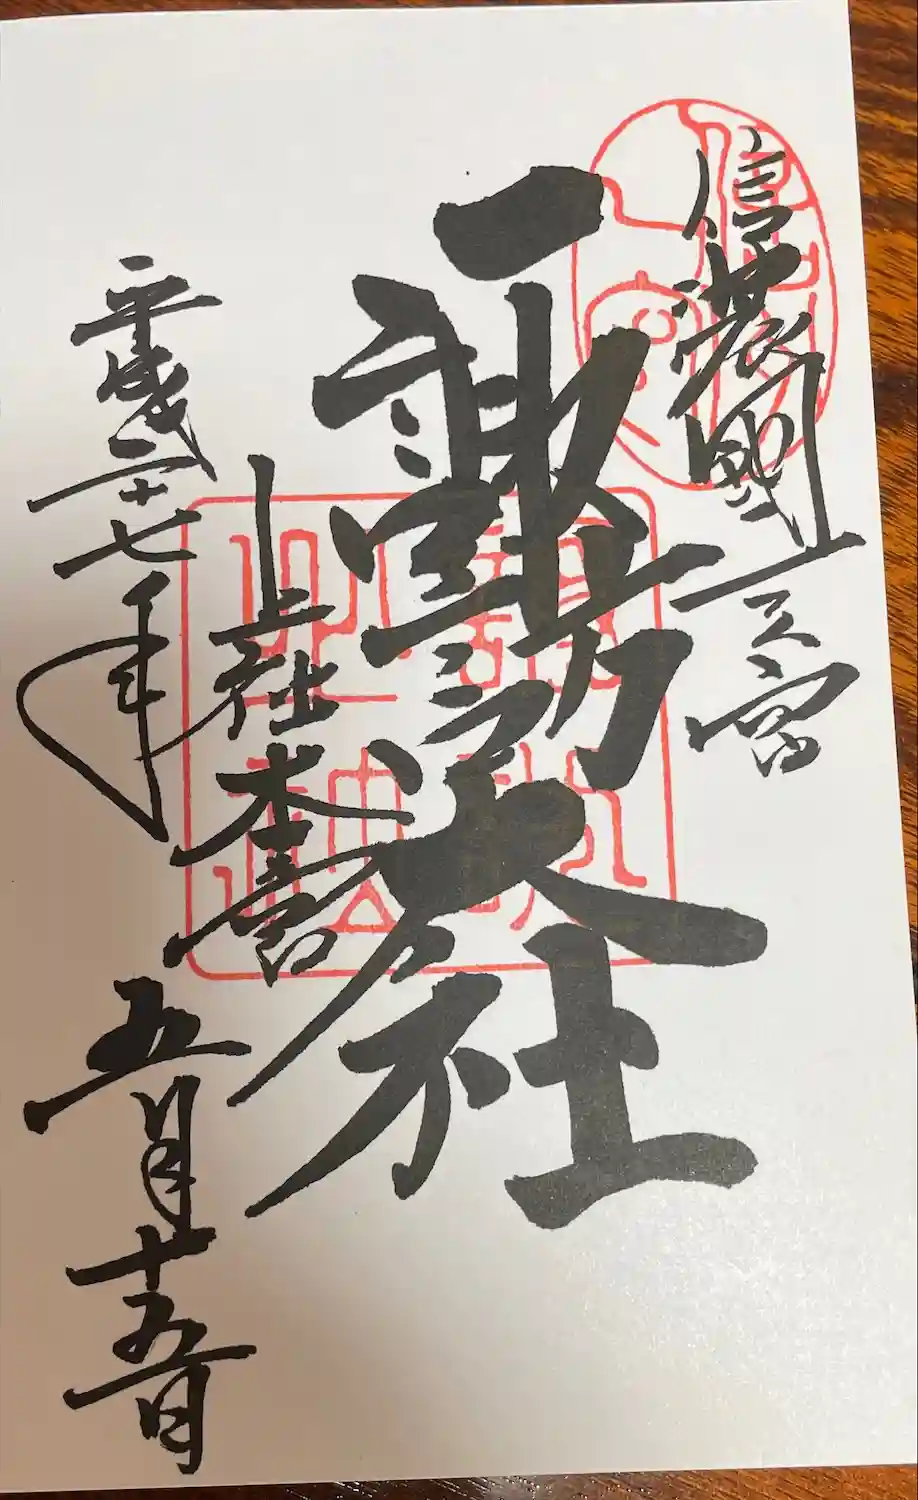 信濃國一之宮
諏訪大社
上社本宮
平成二十七年五月十五日